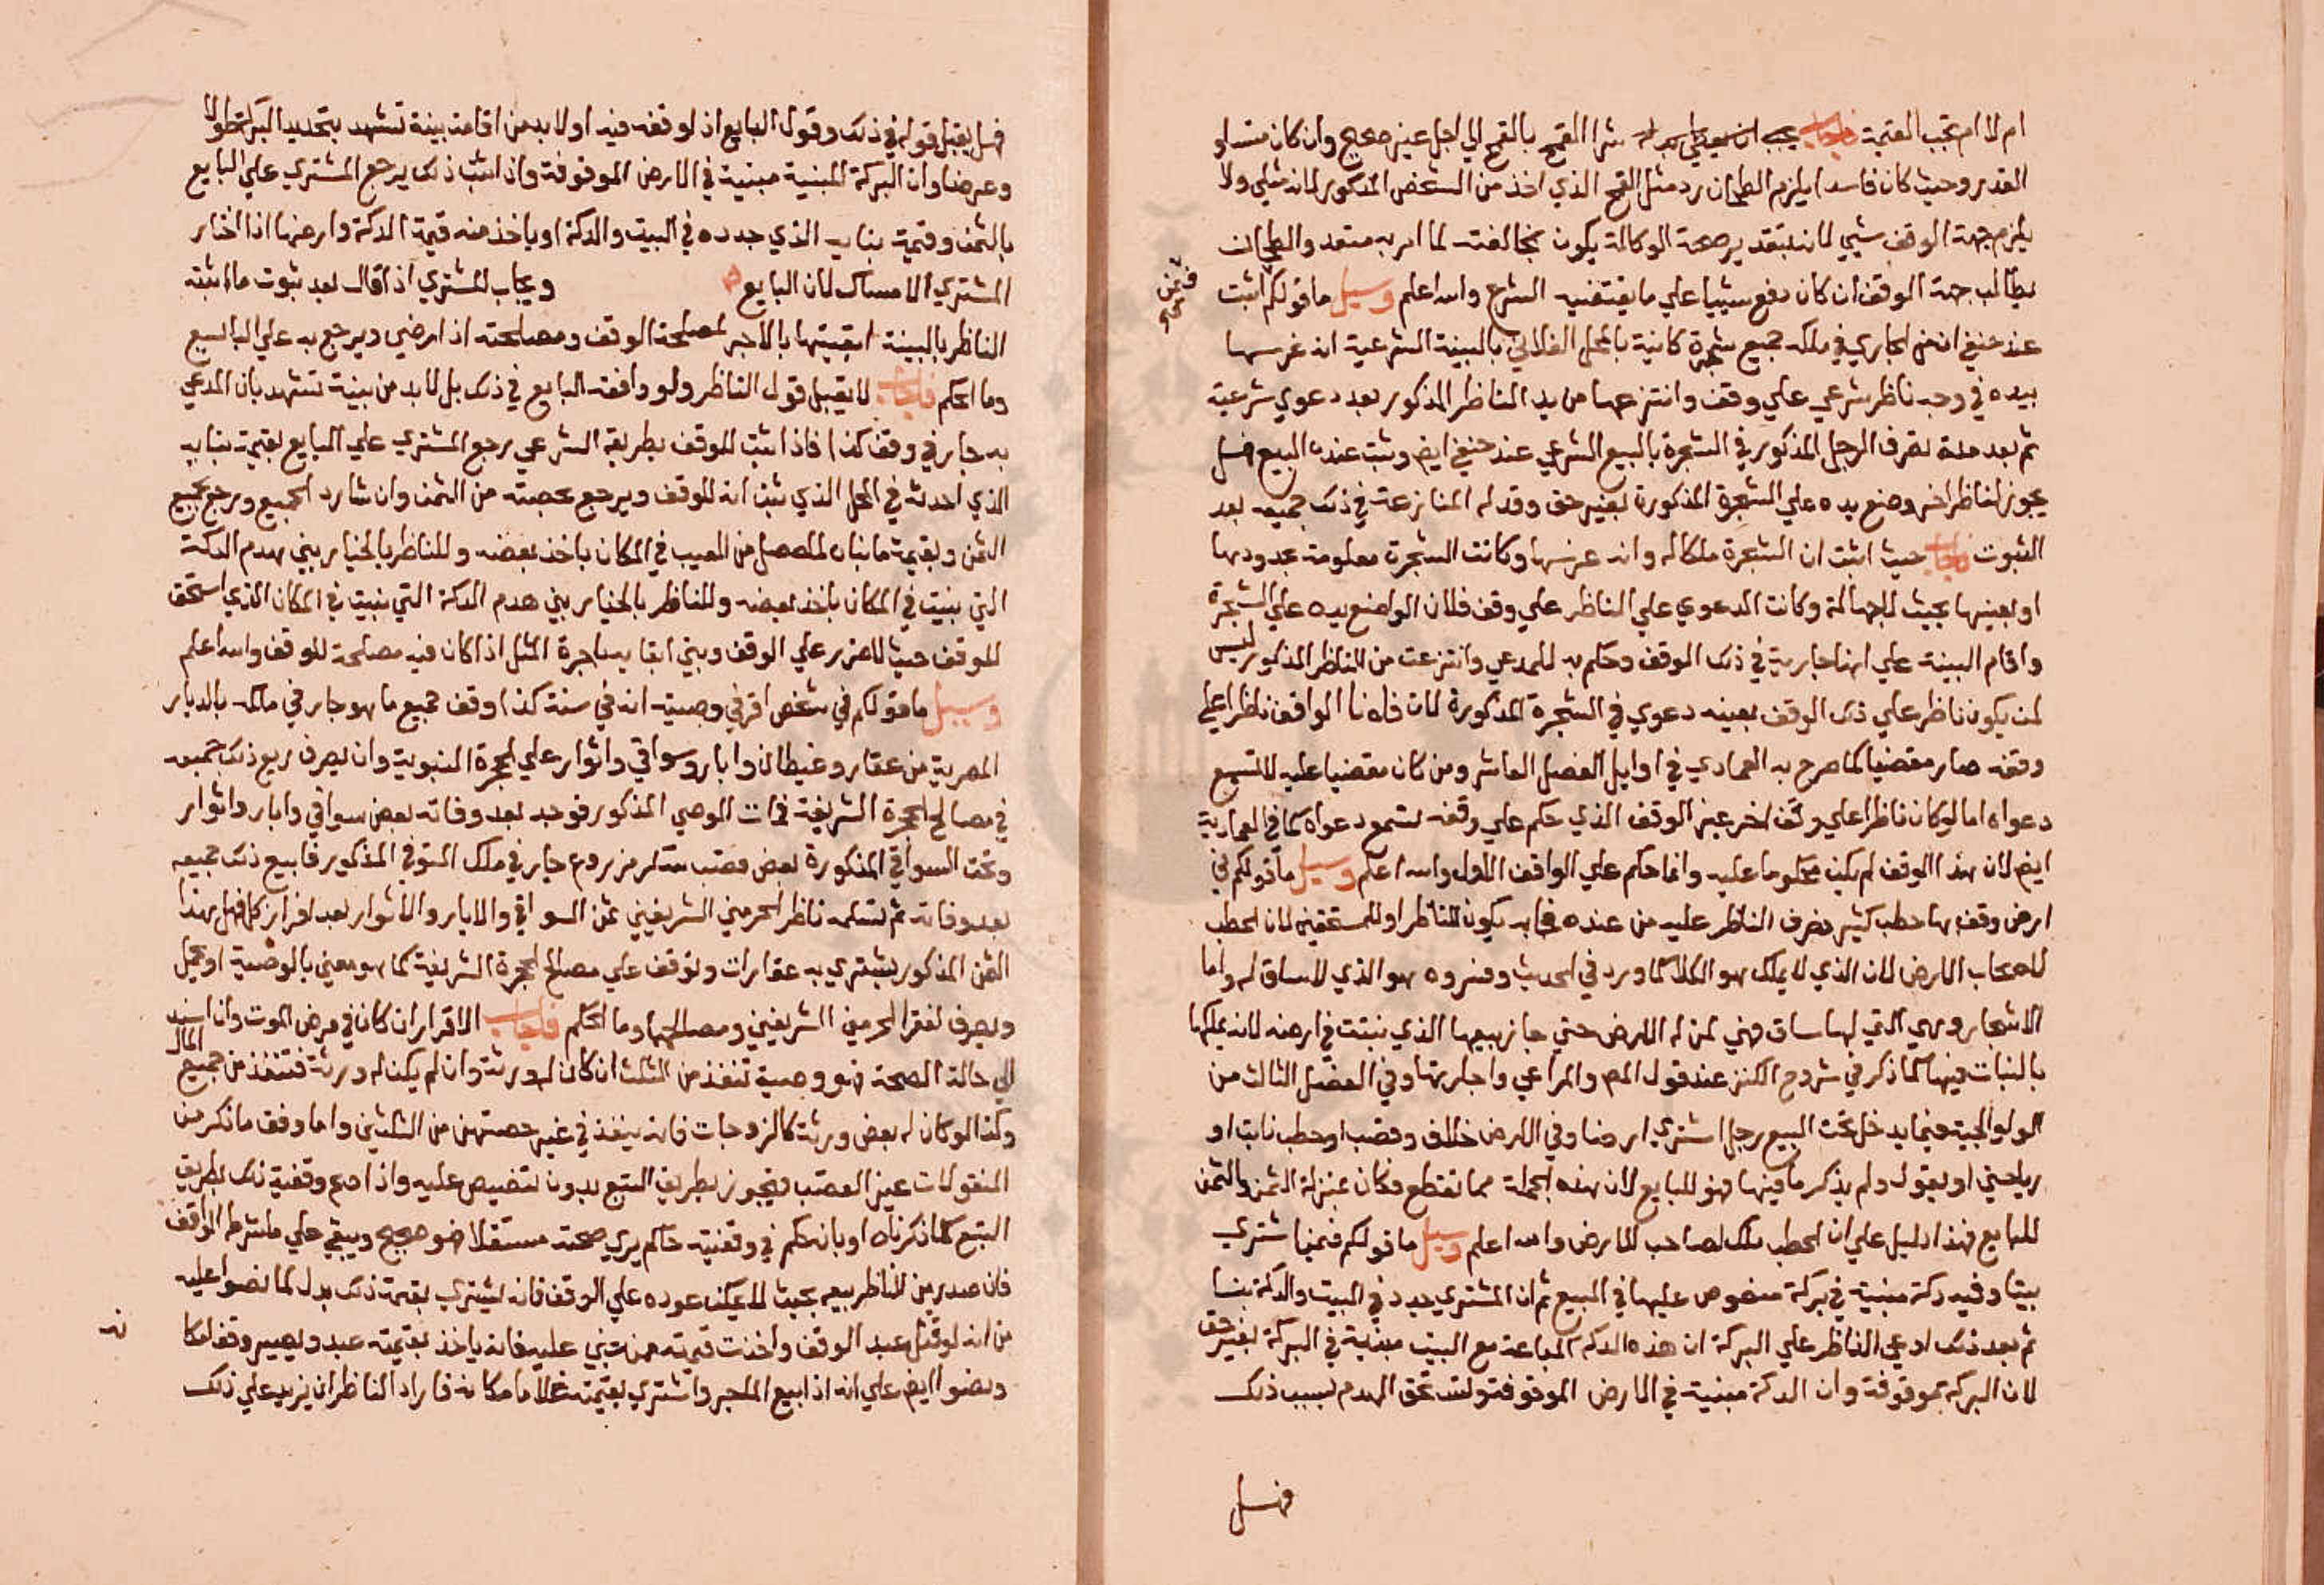 ام لا ام تجب القيمة فاجاب شرا القمح بالقمح الي اجل غير صحيح وان كان متساو
القدر وحيث كان فاسدا يلزم الطحان رد مثل القمح الذي اخذ من الشخص المذكور لانه مثلي ولا
يلزم جهة الوقف شيي لانه بتقدير صحة الوكالة يكون مخالفته لما امر به متعد والطحان
يطالب جهة الوقف ان كان دفع شييا علي ما يقتضيه الشرع والله اعلم وسيل ما قولكم اثبت
عند حنفي ان من الجاري في ملكه جميع شجرة كاينة بالمحل الفلاني بالبينة الشرعية انه غرسها
بيده في وجه ناظر شرعي علي وقف وانتزعها من يد الناظر المذكور بعد دعوي شرعية
ثم بعد مدة تصرف الرجل المذكور في الشجرة بالبيع الشرعي عند حنفي ايض وثبت عنده البيع فهل
يجوز لناظر اخر وضع يده علي الشجرة المذكورة بغير حق وقد له المنازعة في ذلك جميعه بعد
الثبوت فاجاب حيث اثبت ان الشجرة ملكا له وانه غرسها وكانت الشجرة معلومة بحدودها
او بعينها بحيث لا جهالة وكانت الدعوي علي الناظر علي وقف فلان الواضع يده علي الشجرة
واقام البينة علي انها جارية في ذلك الوقف وحكم به للمدعي وانتزعت من الناظر المذكور ليس
لمن يكون ناظر علي ذلك الوقف بعينه دعوي في الشجرة المذكورة لان فلانا الواقف ناظرا علي
وقفه صار مقضيا كما صرح به العمادي في اوايل الفصل العاشر ومن كان مقضيا عليه لا تسمع
دعواه اما لو كان ناظرا علي وقف اخر غير الوقف الذي حكم علي وقفه تسمع دعواه كما في العمادية
ايض لان هذا الوقف لم يكن محكوما عليه وانما حكم علي الواقف الاول والله اعلم وسيل ما قولكم في
ارض وقف بها حطب كثير صرف الناظر عليه من عنده يكون للناظر او للمستحقين لان الحطب
لاصحاب الارض لان الذي لا يملك هو الكلا كما ورد في الحديث وفسروه هو الذي لا ساق له واما
الاشجار وهي التي لها ساق فهي لمن له الارض حتي جاز بيعها الذي نبتت في ارضه لانه يملكها
بالنبات فيها كما ذكر في شروح الكنز عند قول المص والمراعي واجارتها وفي الفصل الثالث من
الولوالجية فيما يدخل تحت البيع رجل اشتري ارضا وفي الارض خلاف وقصب او حطب نابت او
رياحين او بقول ولم يذكر ما فيها فهو للبايع لان هذه الجملة مما تقطع فكان بمنزلة الثمر والثمن
للبايع فهذا دليل علي ان الحطب ملك لصاحب الارض والله اعلم وسيل ما قولكم فيمن اشتري
بيتا وفيه دكة مبنية في بركة منصوص عليها في البيع ثم ان المشتري جدد في البيت والدكة بنا
ثم بعد ذلك ادعي الناظر علي البركة ان هذه الدكة المباعة مع البيت مبنية في البركة بغير حق
لان البركة موقوفة وان الدكة مبنية في الارض الموقوفة وتستحق الهدم بسبب ذلك
فهل
فهل يقبل قوله في ذلك وقول البايع اذ لو وقفه فيه او لا بد من اقامة بينة تشهد بتحديد البركة طولا
وعرضا وان البركة المبنية مبنية في الارض الموقوفة واذا ثبت ذلك يرجع المشتري علي البايع
بالثمن وقيمة بنايه الذي جدده في البيت والدكة او ياخذ منه قيمة الدكة وارضها اذا اختار
المشتري الامساك لان البايع ويجاب المشتري اذ اقال بعد ثبوت ما اثبته
الناظر بالبينة ابقيتها بالاجر لمصلحة الوقف ومصلحته اذ ارضي ويرجع به علي البايع
وما الحكم فاجاب لا يقبل قول الناظر ولو وافقه البايع في ذلك بل لا بد من بينة تشهد بان المدعي
به جار في وقف كذا فاذا ثبت للوقف بطريقه الشرعي رجع المشتري علي البايع بقيمة بنايه
الذي احدثه في المحل الذي ثبت انه للوقف ويرجع بحصته من الثمن وان شا رد الجميع ورجع بجميع
الثمن وبقيمة ما بناه لما حصل من العيب في المكان باخذ بعضه وللناظر بالخيار بين هدم الدكة
التي بنيت في المكان باخذ بعضه وللناظر بالخيار بين هدم الدكة التي بنيت في المكان الذي استحق
للوقف حيث لا ضرر علي الوقف وبين ابقايه باجرة المثل اذا كان فيه مصلحة للوقف والله اعلم
وسيل ما قولكم في شخص اقر في وصيته انه في سنة كذا وقف جميع ما هو جار في ملكه بالديار
المصرية من عقار وغيطان وابار وسواقي واثوار علي الحجرة النبوية وان يصرف ريع ذلك جميعه
في مصالح الحجرة الشريفة فمات الموصي المذكور فوجد بعد وفاته بعض سواقي وابار واثوار
وتحت السواقي المذكورة بعض قصب سكر مزروع جار في ملك المتوفي المذكور فابيع ذلك جميعه
بعد وفاته ثم تسلمه ناظر الحرمين الشريفين ثمن السواقي والابار والاثوار بعد افراز كل فهل بهذا
الثمن المذكور يشتري به عقارات وتوقف علي مصالح الحجرة الشريفة كما هو معين بالوصية او يحمل
ويصرف لفقرا الحرمين الشريفين ومصالحها وما الحكم فاجاب الاقرار ان كان في مرض الموت وان اسند
الي حالة الصحة فهو وصية تنفذ من الثلث ان كان له ورثة وان لم يكن له ورثة فتنفذ من جميع المال
وكذا لو كان له بعض ورثة كالزوجات فانه ينفذ في غير حصتهن من الثلثين واما وقف ما ذكر من
المنقولات غير القصب فيجوز بطريق التبع بدون تنصيص عليه واذا ادعي وقفية ذلك بطريق
التبع كما ذكرناه او بان حكم في وقفيته حاكم يري صحته مستقلا فهو صحيح ويبقي علي ما شرط الواقف
فان صدر من الناظر بيعه بحيث لا يمكن عوده علي الوقف فانه يشتري بقيمة ذلك بدل كما نصوا عليه
من انه لو قتل عبد الوقف واخذت قيمته ممن جني عليه فانه ياخذ بقيمته عبد ويصير وقفا مكا
نه
ونصوا ايض علي انه اذا بيع الحجر واشتري بقيمته غلاما مكانه فاراد الناظر ان يزيد علي ذلك